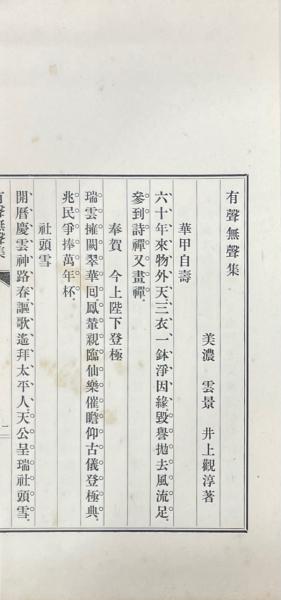 有聲無聲集
美濃 雲景 井上觀淳著
華甲自壽
六十年來物外天三衣一鉢淨因緣毀譽拋去風流足
參到詩禪又畫禪
奉賀 今上陛下登極
瑞雲擁闕翠華回鳳輦親臨仙樂催瞻仰古儀登極典
兆民爭捧萬年杯
社頭雪
開曆慶雲神路春謳歌遙拜太平人天公呈瑞社頭雪
有聲無聲集